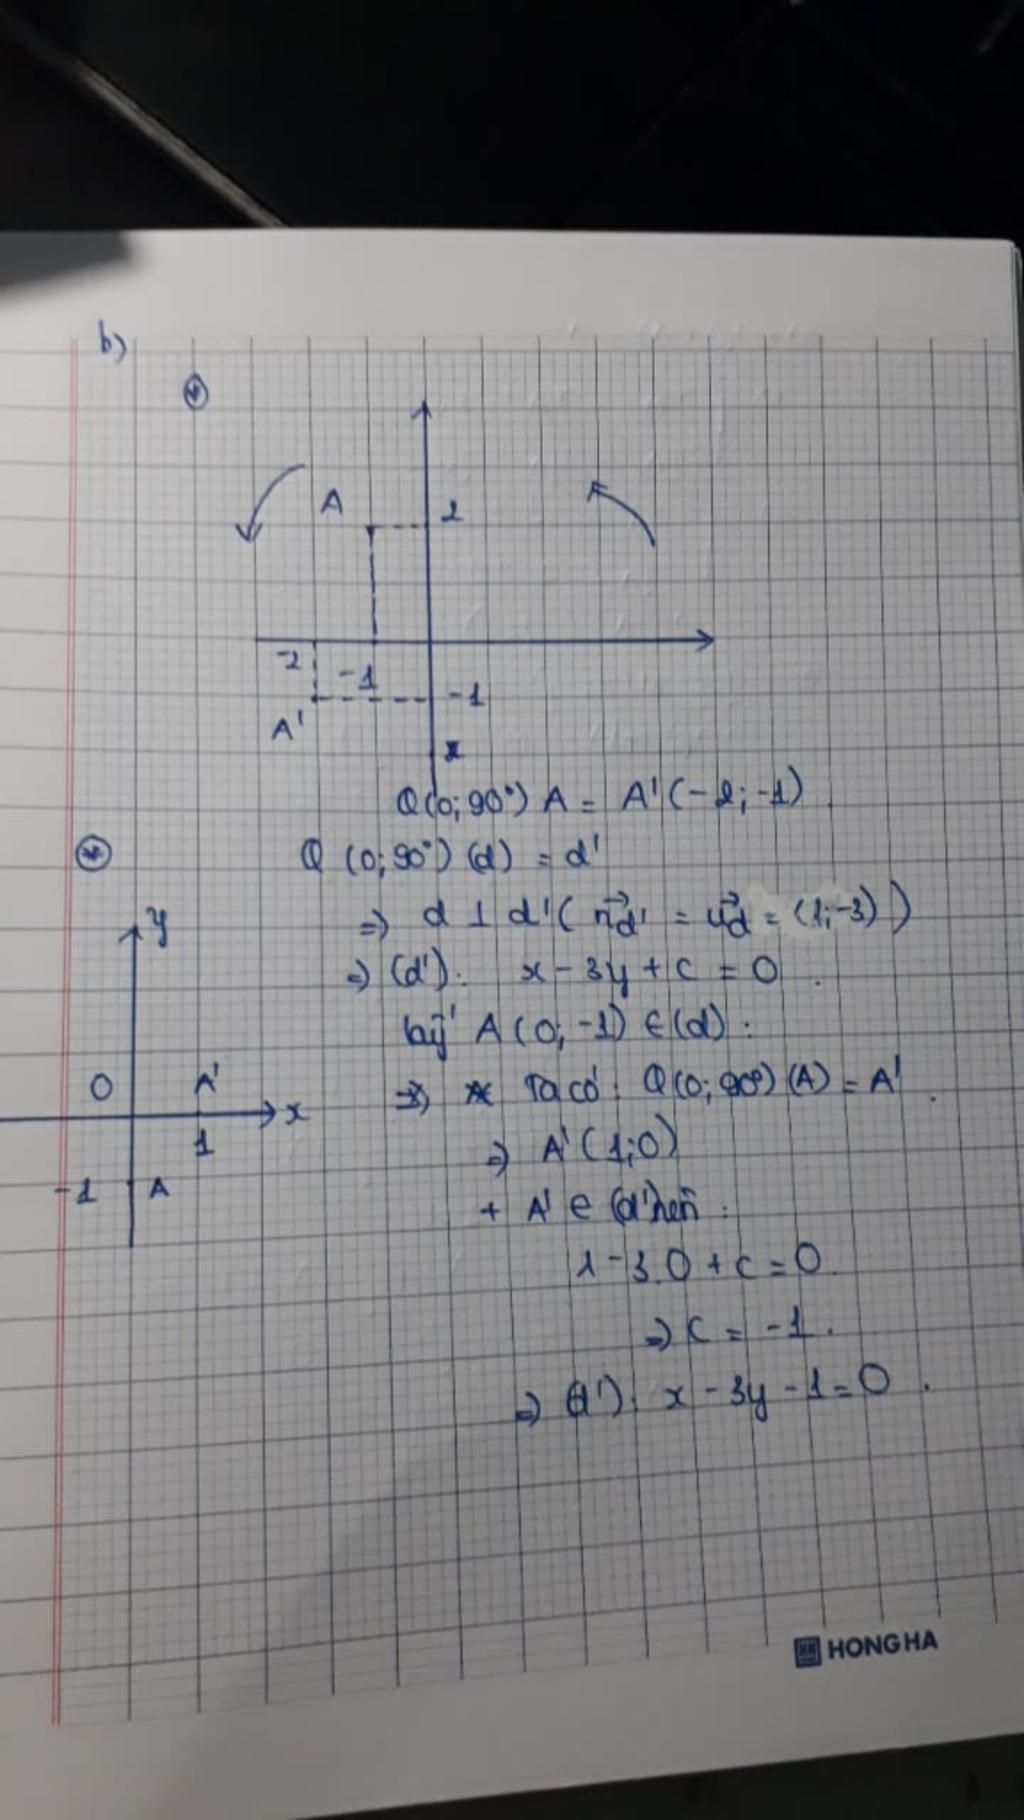 b)
A
2
-2
-1
-1
A'
Q(0; 90°) A = A'(-2; -1)
Q (0; 90°) (d) = d'
y
=> d ⊥ d' ( n⃗d' = u⃗d = (1; -3) )
=> (d'): x - 3y + c = 0.
lấy A (0; -1) ∈ (d):
O
A'
x
1
-1
A
=> Ta có: Q(0; 90°) (A) = A'.
=> A' (1; 0)
+ A' ∈ (d') nên:
1 - 3.0 + c = 0.
=> c = -1.
=> (d'): x - 3y - 1 = 0.
HONG HA